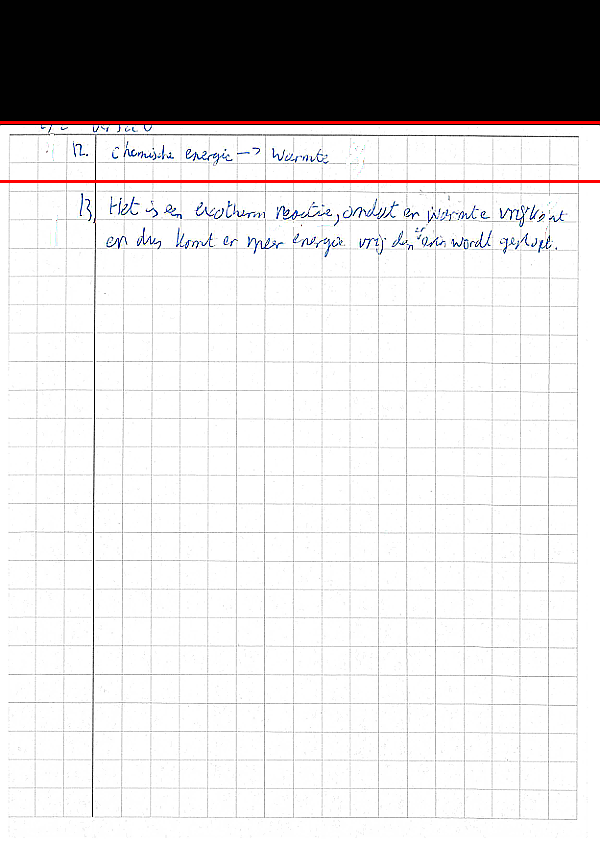 12. Chemische energie -> Warmte
13, Het is een exotherm reactie, omdat er warmte vrij komt
en dus komt er meer energie vrij dan er in wordt gestopt.